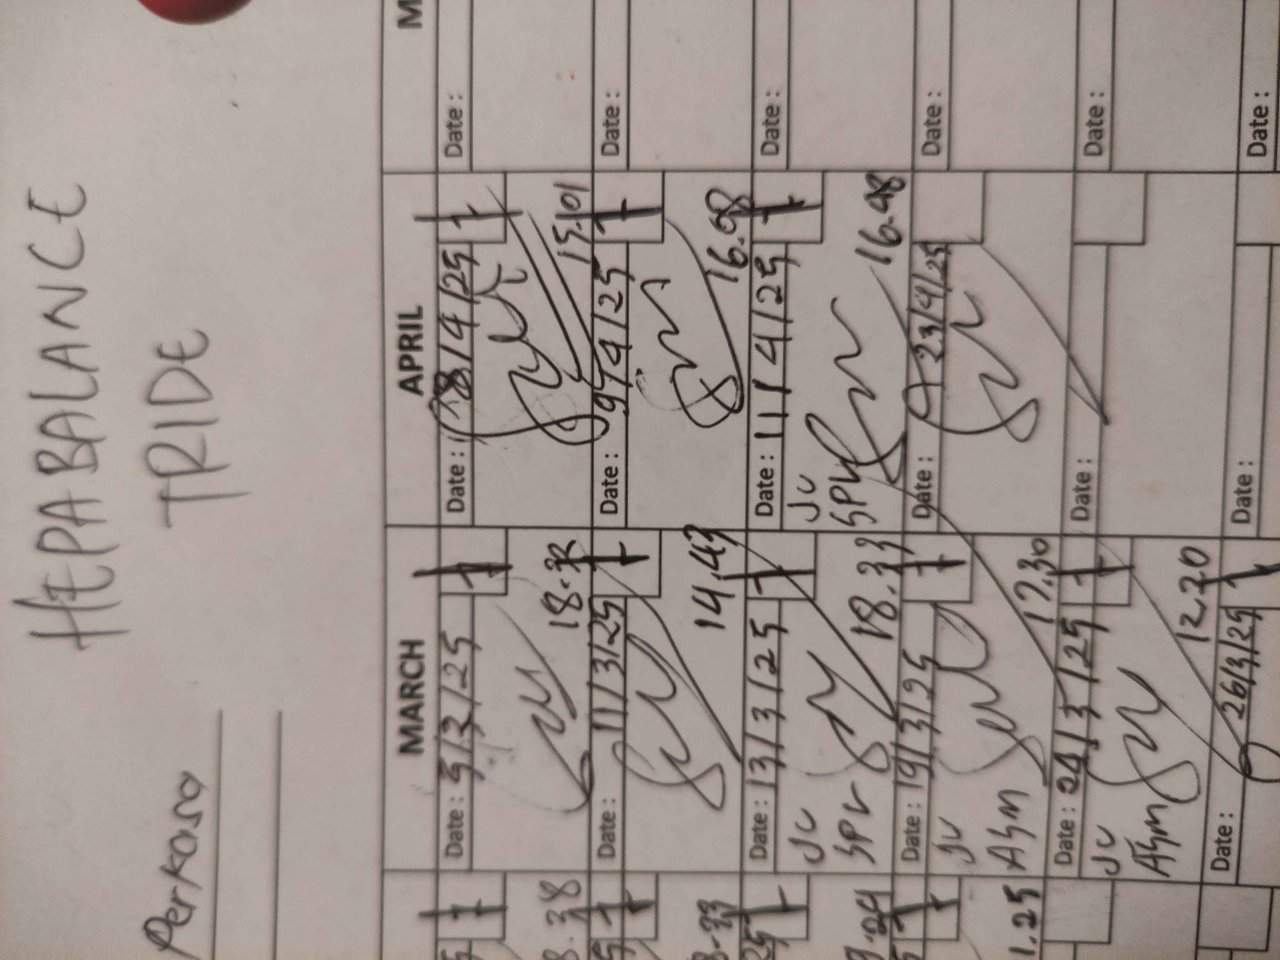 HEPABALANCE
TRIDE
Perkasa
MARCH
APRIL
Date : 5/3/25
18.32
Date : 11/3/25
14.43
Date : 13/3/25
JC
SPV
18.33
Date : 19/3/25
JC
ASM
17.30
Date : 24/3/25
JC
ASM
12.20
Date : 26/3/25
Date : 8/4/25
15.01
Date : 9/4/25
16.08
Date : 11/4/25
JC
SPV
16.48
Date : 23/4/25
Date :
Date :
M
Date :
Date :
Date :
Date :
Date :
Date :